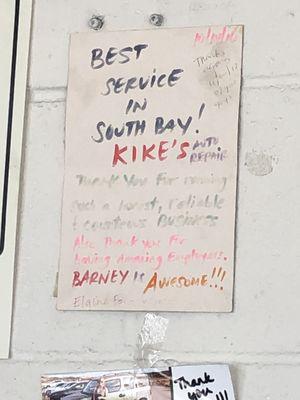 BEST
SERVICE
IN
SOUTH BAY!
KIKE'S AUTO
REPAIR
Thank You For running
such a honest, reliable
& courteous BUSINESS
Also Thank you For
having amazing Employees.
BARNEY is AWESOME!!!
Elaine
Thank
you!!!